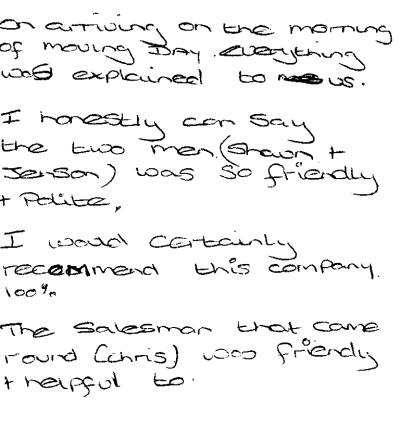 On arriving on the morning
of moving DAY everything
was explained to us.
I honestly can say
the two men (Shaun +
Jenson) was so friendly
+ Polite,
I would certainly
recommend this company.
100%
The Salesman that came
round (Chris) was friendly
+ helpful to.